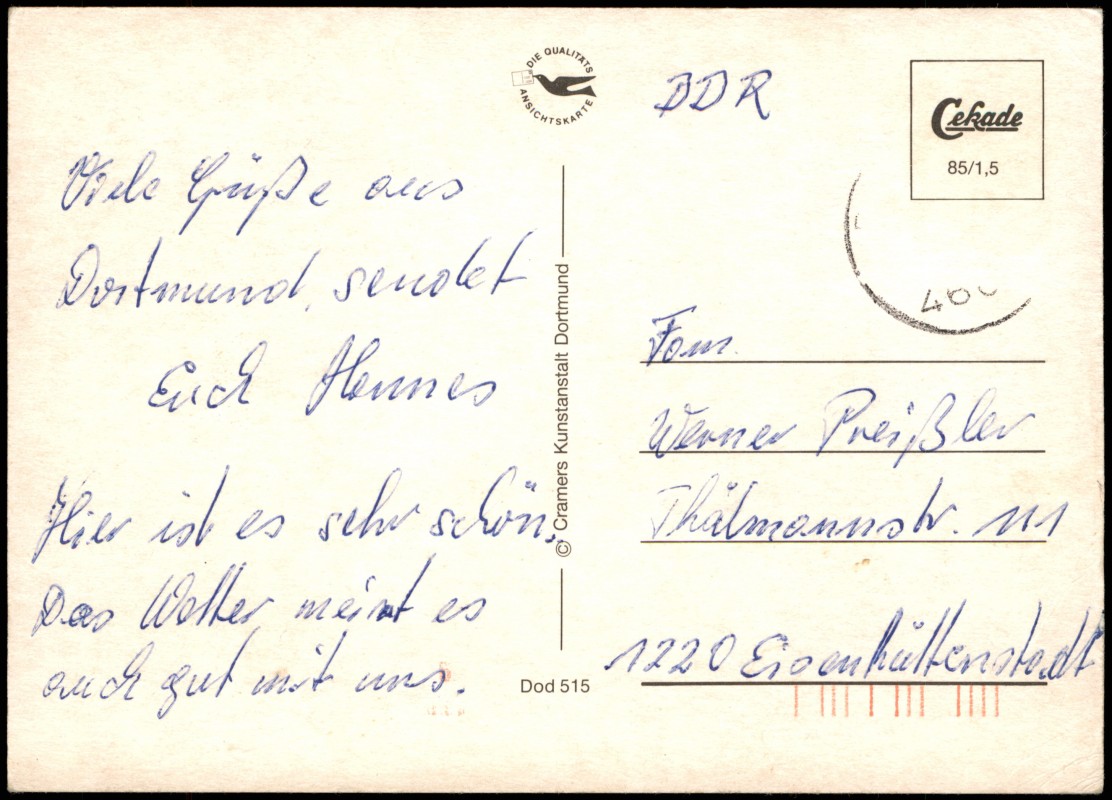 Viele Grüße aus
Dortmund, sendet
Euch Hannes
Hier ist es sehr schön.
Das Wetter meint es
auch gut mit uns.
DIE QUALITÄTS
ANSICHTSKARTE
© Cramers Kunstanstalt Dortmund
Dod 515
DDR
Cekade
85/1,5
460
Fam.
Werner Preißler
Thälmannstr. 111
1220 Eisenhüttenstadt